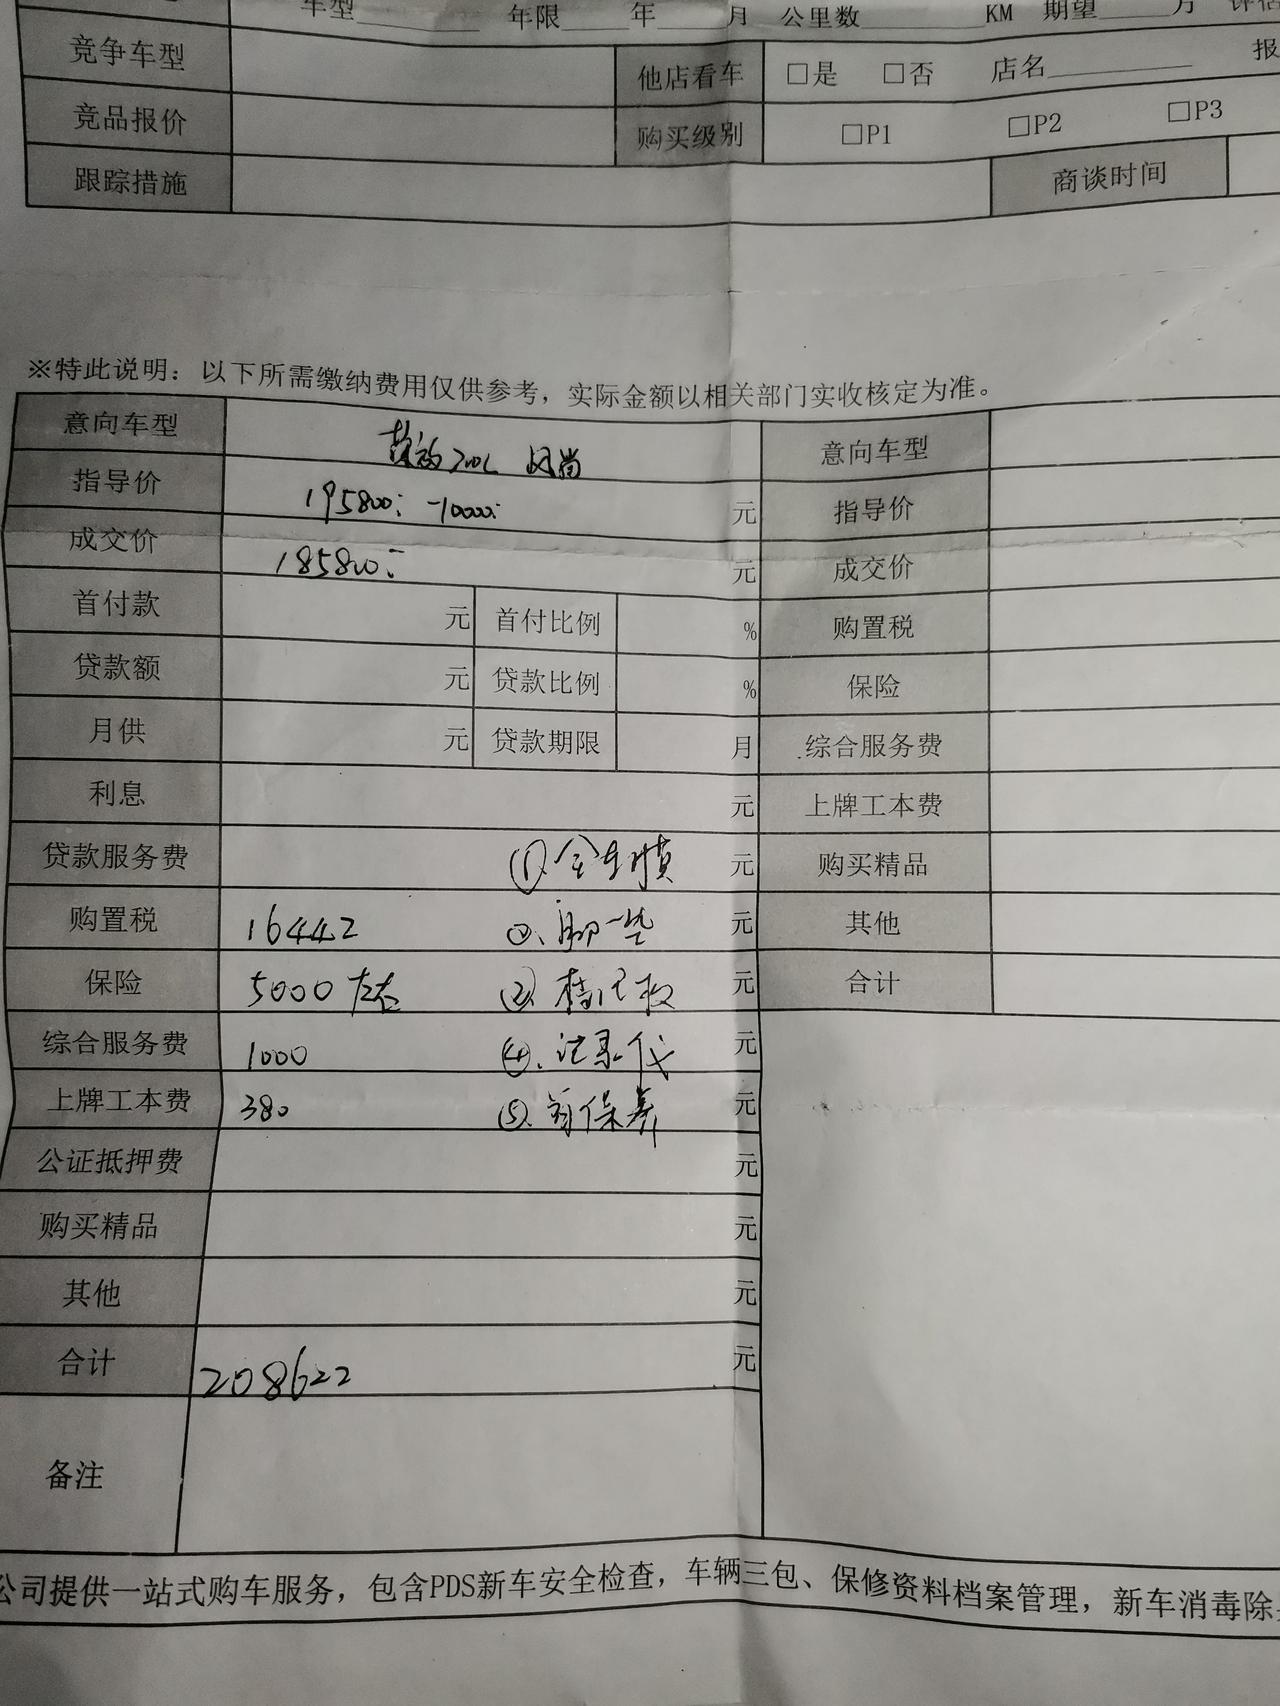 车型 年限 年 月 公里数 KM 期望 万 评估
竞争车型 他店看车 □是 □否 店名 报
竞品报价 购买级别 □P1 □P2 □P3
跟踪措施 商谈时间
※特此说明：以下所需缴纳费用仅供参考，实际金额以相关部门实收核定为准。
意向车型 200L 风尚 意向车型
指导价 195800 -10000 元 指导价
成交价 185800 元 成交价
首付款 元 首付比例 % 购置税
贷款额 元 贷款比例 % 保险
月供 元 贷款期限 月 综合服务费
利息 元 上牌工本费
贷款服务费 ①.全车膜 元 购买精品
购置税 16442 ②.脚垫 元 其他
保险 5000左右 元 合计
综合服务费 1000 ④.记录仪 元
上牌工本费 380 ⑤.首保养 元
公证抵押费 元
购买精品 元
其他 元
合计 208622 元
备注
公司提供一站式购车服务，包含PDS新车安全检查，车辆三包、保修资料档案管理，新车消毒除